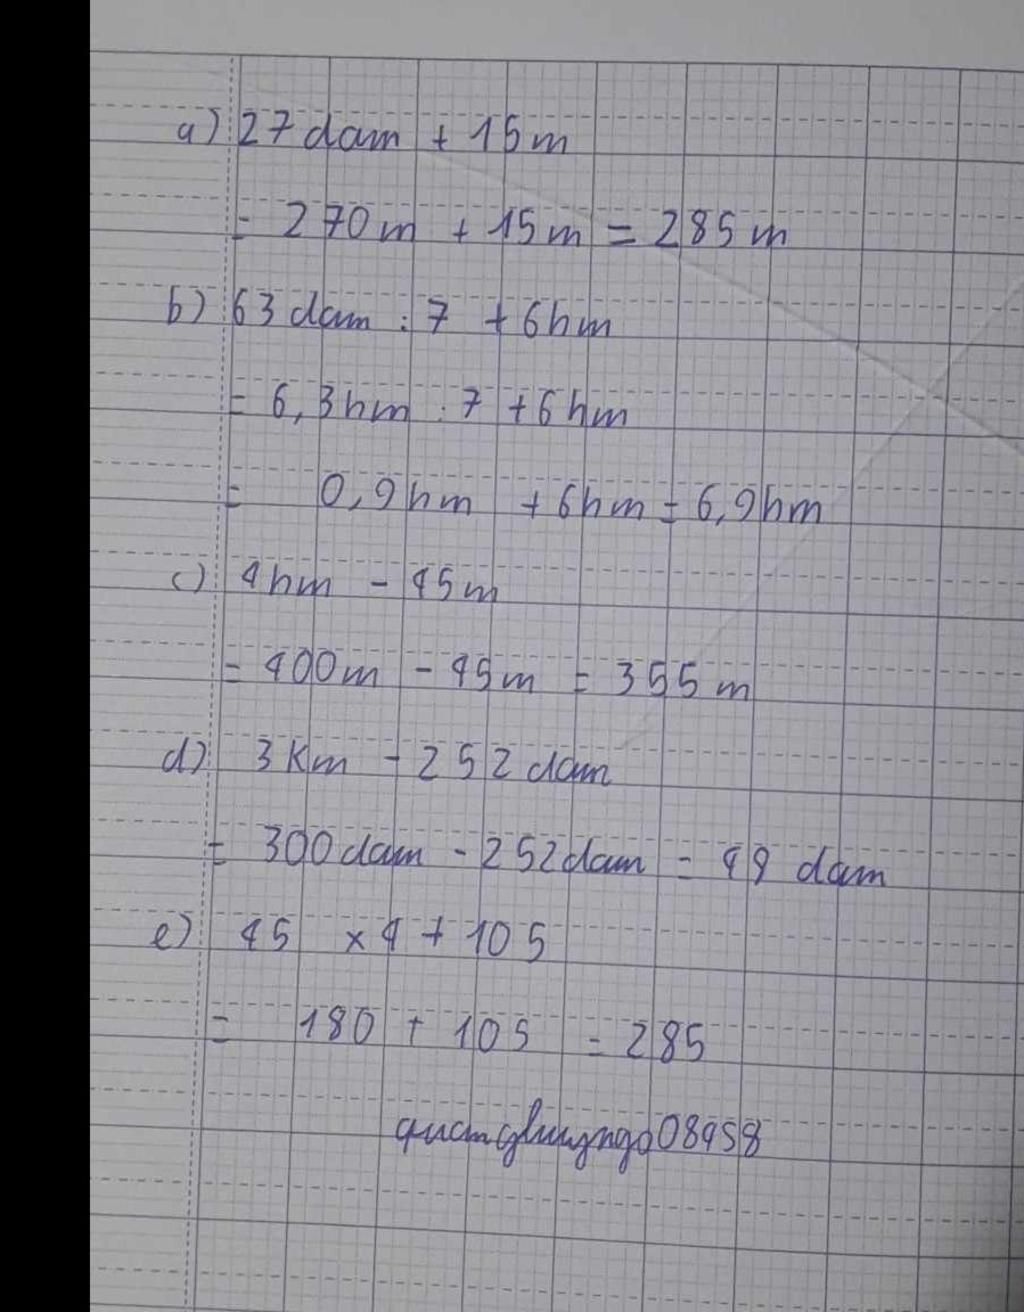 a) 27 dam + 15 m
= 270 m + 15 m = 285 m
b) 63 dam : 7 + 6 hm
= 6,3 hm : 7 + 6 hm
= 0,9 hm + 6 hm = 6,9 hm
c) 4 hm - 45 m
= 400 m - 45 m = 355 m
d) 3 Km - 252 dam
= 300 dam - 252 dam = 48 dam
e) 45 x 4 + 105
= 180 + 105 = 285